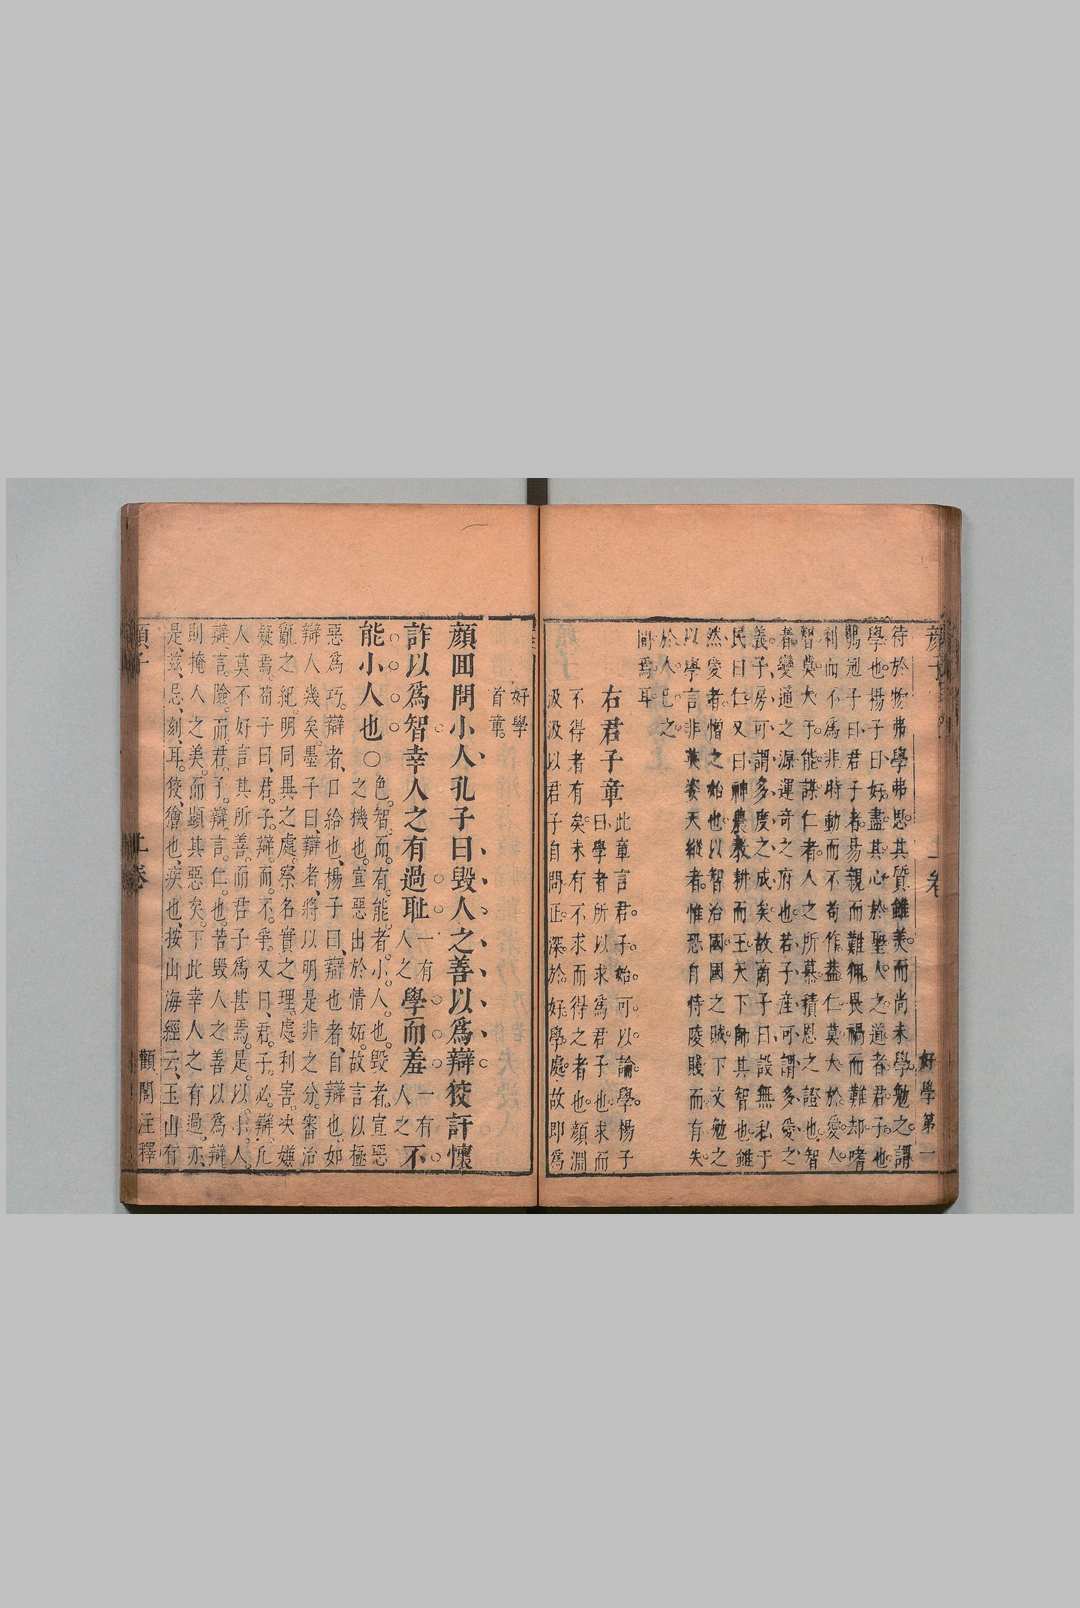 顔子
上卷
好學第一
待於物弗學弗思其質雖美而尚未學勉之謂
學也揚子曰好盡其心於聖人之道者君子也
鶡冠子曰君子者易親而難佩畏禍而難却嗜
利而不爲非時動而不苟作葢仁莫大於愛人
智莫大于能謀仁者人之所慕積思之證也智
者變通之源運奇之府也若子産可謂多愛之
義子房可謂多度之成矣故商子曰設無私于
民曰仁又曰神農敎耕而王天下師其智也雖
然愛者憎之始也以智治國國之賊下文勉之
以學言非英姿天縱者惟恐自恃陵賤而有失
於人巳之
間焉耳
右君子章
此章言君子始可以論學楊子
曰學者所以求爲君子也求而
不得者有矣未有不求而得之者也顔淵
汲汲以君子自問正深於好學處故即爲
好學
首章
顔回問小人孔子曰毁人之善以爲辯狡訐懷
詐以爲智幸人之有過耻一有人之學而羞一有人之不
能小人也○色智而有能者小人也毁者宣惡
之機也宣惡出於情妬故言以極
惡爲巧辯者口給也楊子曰辯也者自辯也如
辯人幾矣墨子曰辯者將以明是非之分審治
亂之紀明同異之處察名實之理處利害决嫌
疑焉荀子曰君子辯而不爭又曰君子必辯凢
人莫不好言其所善而君子爲甚焉是以小人
辯言險而君子辯言仁也苦毁人之善以爲辯
則掩人之美而顯其惡矣下此幸人之有過亦
是兹忌刻耳狡獪也疾也按山海經云玉山有
顔子
上卷
顧閎注釋